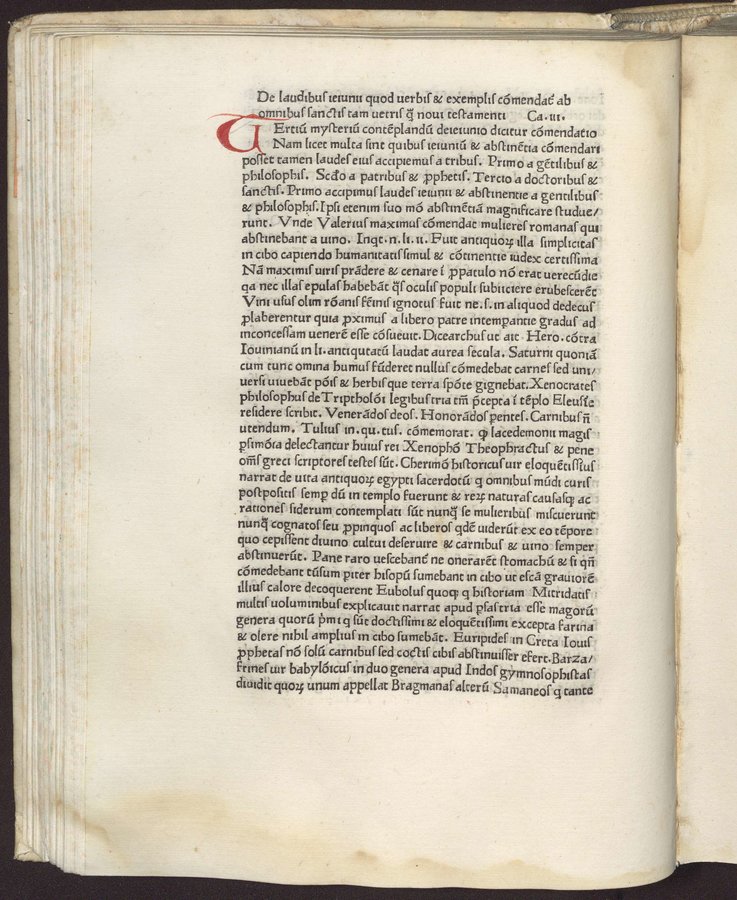 De laudibus ieiunii quod uerbis & exemplis cōmendat̄ ab
omnibus sanctis tam uetris q̄ noui testamenti Ca. iii.
TErtiū mysteriū contēplandū de ieiunio dicitur cōmendatio
Nam licet multa sint quibus ieiuniū & abstinētia cōmendari
posset tamen laudes eius accipiemus a tribus. Primo a gētilibus &
philosophis. Scďo a patribus & ꝓphetis. Tercio a doctoribus &
sanctis. Primo accipimus laudes ieiunii & abstinentie a gentilibus
& philosophis. Ipsi etenim suo mō abstinētiā magnificare studue/
runt. Vnde Valerius maximus cōmendat mulieres romanas qui
abstinebant a uino. Inqt. n. li. ii. Fuit antiquoꝝ illa simplicitas
in cibo capiendo humanitatis simul & cōtinentie iudex certissima
Nā maximis uiris prādere & cenare ī ꝓpatulo nō erat uerecūdie
qa nec illas epulas habebāt q̄s oculis populi subiicere erubescerēt
Vini usus olim rōanis fēinis ignotus fuit ne. s. in aliquod dedecus
ꝓlaberentur quia ꝓximus a libero patre intempantie gradus ad
inconcessam uenerē esse cōsueuit. Dicearchus ut ait Hero. cōtra
Iouinianū in li. antiqutatū laudat aurea secula. Saturni quoniā
cum tunc omina humus fūderet nullus cōmedebat carnes sed uni/
uersi uiuebāt pōis & herbis que terra spōte gignebat. Xenocrates
philosophus de Triptholōi legibus tria tm̄ p̄cepta ī tēplo Eleusīe
residere scribit. Venerādos deos. Honorādos pentes. Carnibus n̄
utendum. Tulius in. qu. tus. cōmemorat. ꝙ lacedemonii magis
ꝑsimōia delectantur huius rei Xenophō Theophractus & pene
om̄s greci scriptores testes sūt. Cherimō historicus uir eloquētissīus
narrat de uita antiquoꝝ egypti sacerdotū q omnibus mūdi curis
postpositis semp̄ dū in templo fuerunt & reꝝ naturas causasqꝫ ac
rationes siderum contemplati sūt nunq̄ se mulieribus miscuerunt
nunq̄ cognatos seu ꝓpinquos ac liberos qdē uiderūt ex eo tēpore
quo cepissent diuino cultui deseruire & carnibus & uino semper
abstinuerūt. Pane raro uescebant̄ ne onerarēt stomachū & si qn̄
cōmedebant tūsum piter hisopū sumebant in cibo ut escā grauiorē
illius calore decoquerent Eubolus quoqꝫ q historiam Mitridatis
multis uoluminibus explicauit narrat apud psas tria esse magorū
genera quorū p̄mi q sūt doctissimi & eloquētissimi excepta farina
& olere nihil amplius in cibo sumebāt. Euripides in Creta Iouis
ꝓphetas nō solū carnibus sed coctis cibis abstinuisse refert. Barza/
frines uir babylōicus in duo genera apud Indos gymnosophistas
diuidit quoꝝ unum appellat Bragmanas alterū Samaneos q tante